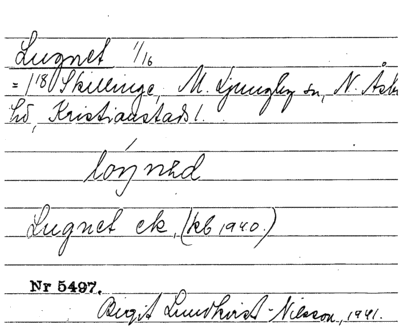 Lugnet 1/16
= 1/18 Skillinge, M. Ljungby sn, N. Åsbo
hd, Kristianstads l.
Lugnet ek, (kb 1940.)
Nr 5497.
Birgit Lundkvist-Nilsson, 1941.